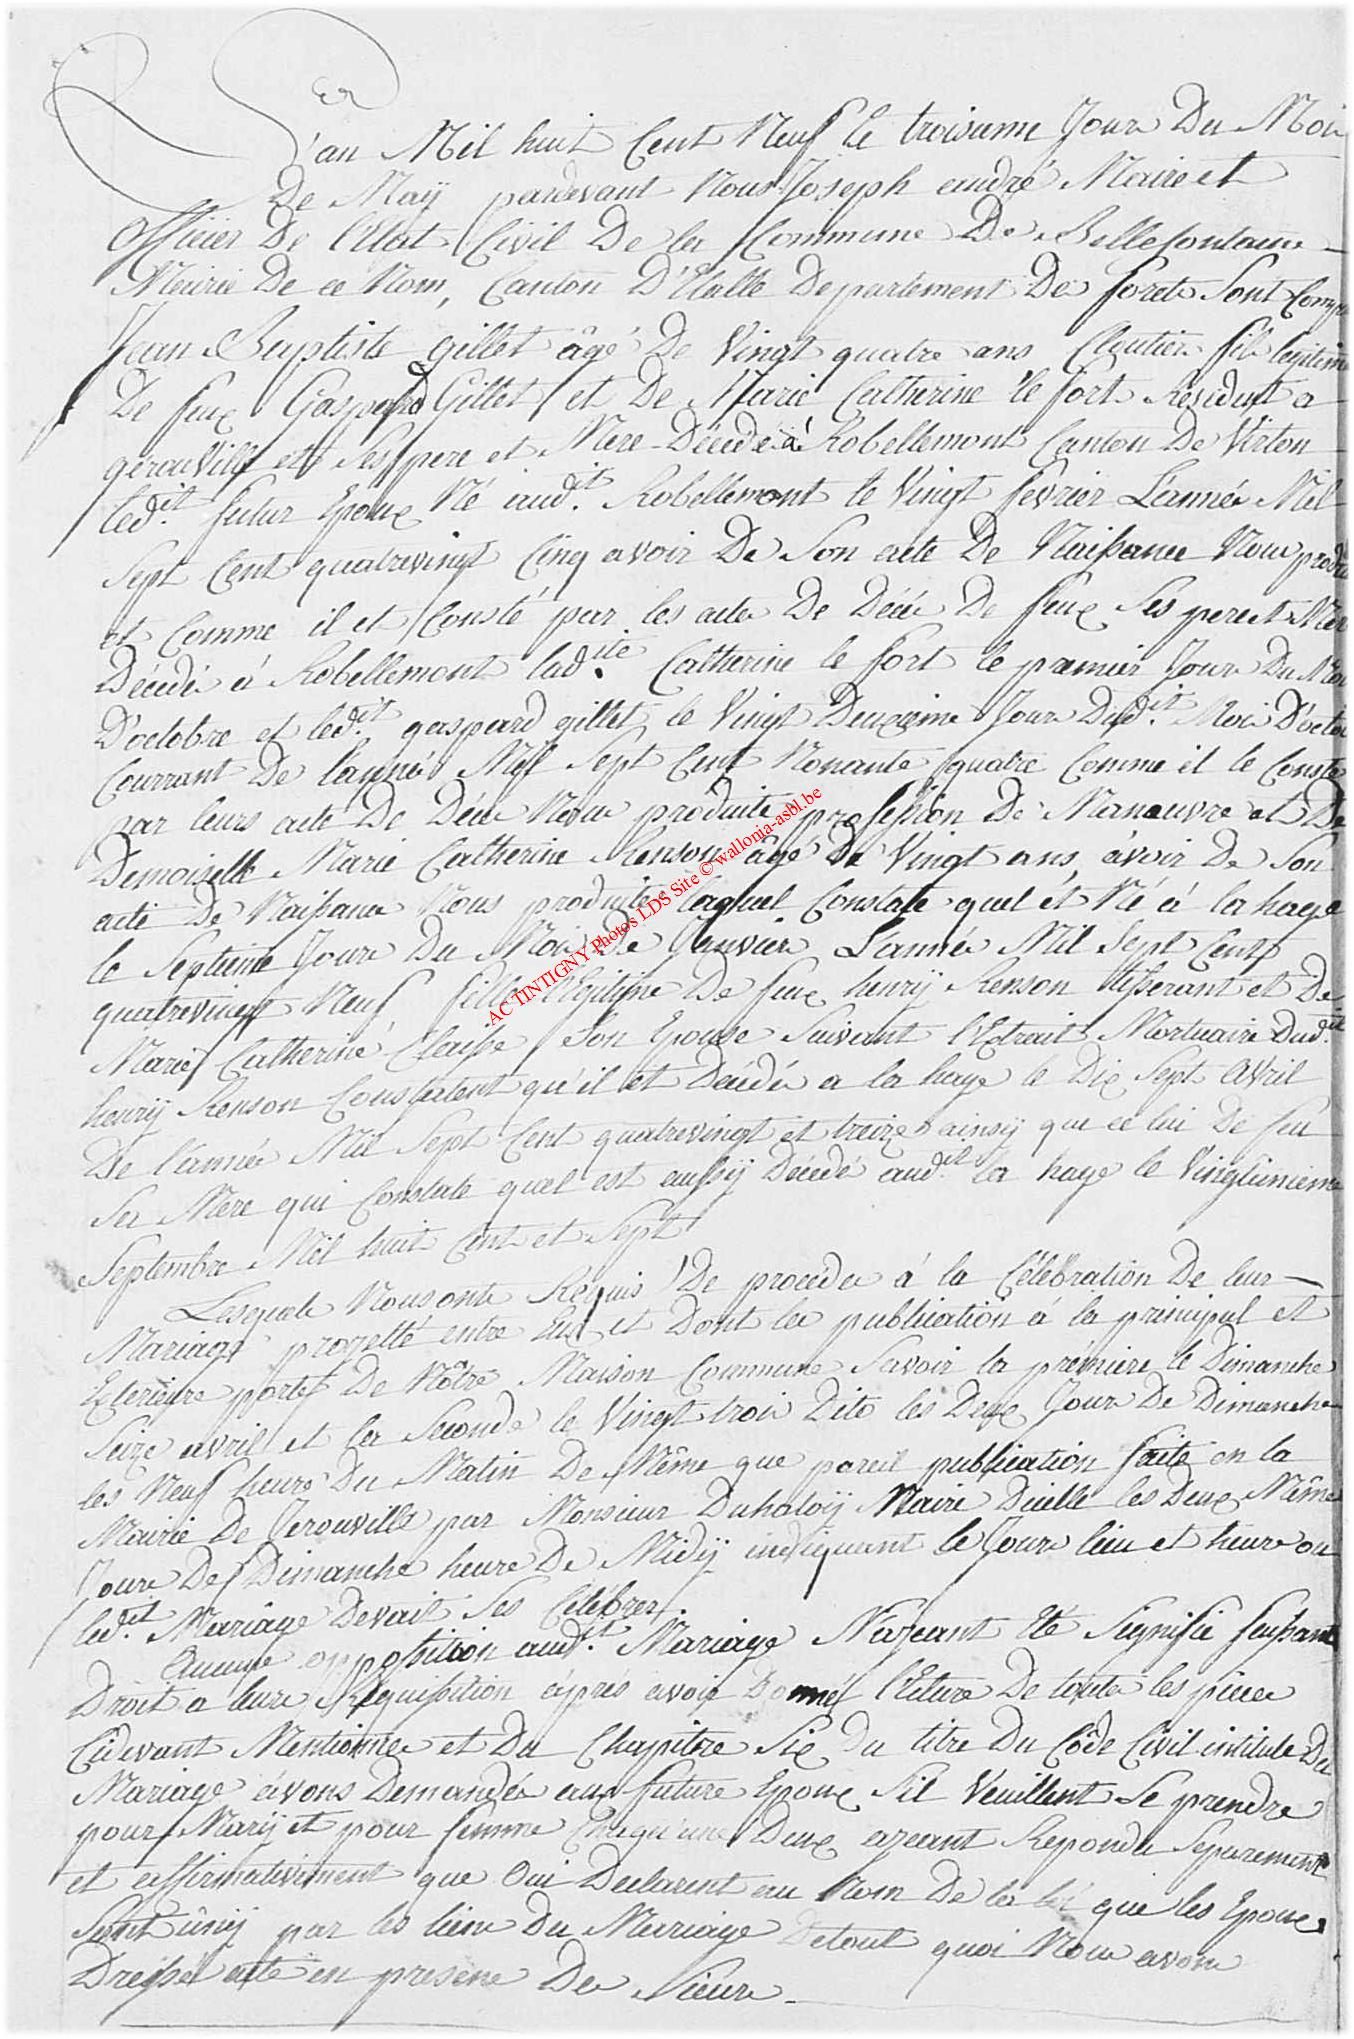 L'an Mil huit Cent Neuf le troisieme Jour Du Moi
De Maÿ pardevant Nous Joseph andré Maire et
Officier De l'Etat Civil De la Commune De Bellefontaine
Meirie De ce Nom, Canton D'Etalle Departement De foret Sont Comp
Jean Baptiste gillet âgé De Vingt quatre ans Cloutier fils legitim
De feux Gaspard Gillet et De Marie Catherine le fort Résident a
gerouville et Ses pere et Mere Décédé á Robellemont Canton De Virton
led.it futur Epoux Né aud.it Robellemont le Vingt fevrier L'année Mil
Sept Cent quatrevingt Cinq avoir De Son acte De Naissance Nous produ
et Comme il et Consté par les acte De Décé De feux Ses pere et Mer
Décédé á Robellemont lad.ite Catherine le fort le premier Jour Du Moi
D'octobre et led.it gaspard gillet le Vingt Deuxieme Jour Dud.it Moi D'octo
Courrant De l'anné Mil Sept Cent Nonante quatre Comme il le Conste
par leurs acte De Décé Nous produite profession De Manœuvre et De
Demoiselle Marie Catherine Renson âgé De Vingt ans, ávoir De Son
acte De Naissance Nous produite laquel Constate quel ét Né á la haye
le Septieme Jour Du Moi De Janvier L'année Mil Sept Cent
quatrevingt Neuf fille légitime De feux henrÿ Renson tisserant et De
Marie Catherine Claisse Son Epouse Suivant l'Extrait Mortuaire Dud.it
henrÿ Renson Constatent qu'il et Décédé a la haye le Dix Sept Avril
De l'année Mil Sept Cent quatrevingt et treize ainsÿ que ce lui De feu
Sa Mere qui Constate quel est aussÿ Décédé aud.it la haye le Vingtunieme
Septembre Mil huit Cent et Sept
Lesquels Nous ont Réquis De proceder á la Célébration De leur
Mariage proyetté entre Eux et Dont la publication á la principal et
Exterieure porte De Nôtre Maison Commune Savoir la premiere le Dimanche
Seize avril et la Seconde le Vingt trois Dito les Deux Jour De Dimanche
les Neuf heure Du Matin De Même que pareil publication faite en la
Mairie De Jerouville par Monsieur Duhatoÿ Maire D'icelle les Deux Même
Jour De Dimanche heure De Midÿ indiquant le Jour lieu et heure ou
led.it Mariâge Devait Ses Celébrer
Aucune opposition aud.it Mariage N'aÿeant Eté Signifié faisant
Droit a leure Réquisition áprés avoir Donnér l'Ecture De toute les piece
Cidevant Mentionné et Du Chapitre Six Du titre Du Côde Civil intitulé Du
Mariage ávons Demandé aux future Epoux S'il Veuillent Se prendre
pour Marÿ et pour femme Chaqu'une Deux aÿeant Repondu Separement
et affirmativement que Oui Declarent au Nom De la loi que les Epoux
Sont ûnÿ par les lien Du Mariage Detout quoi Nous avons
Dréssér acte en presene De Sieur
AC TINTIGNY Photos LDS Site © wallonia-asbl.be